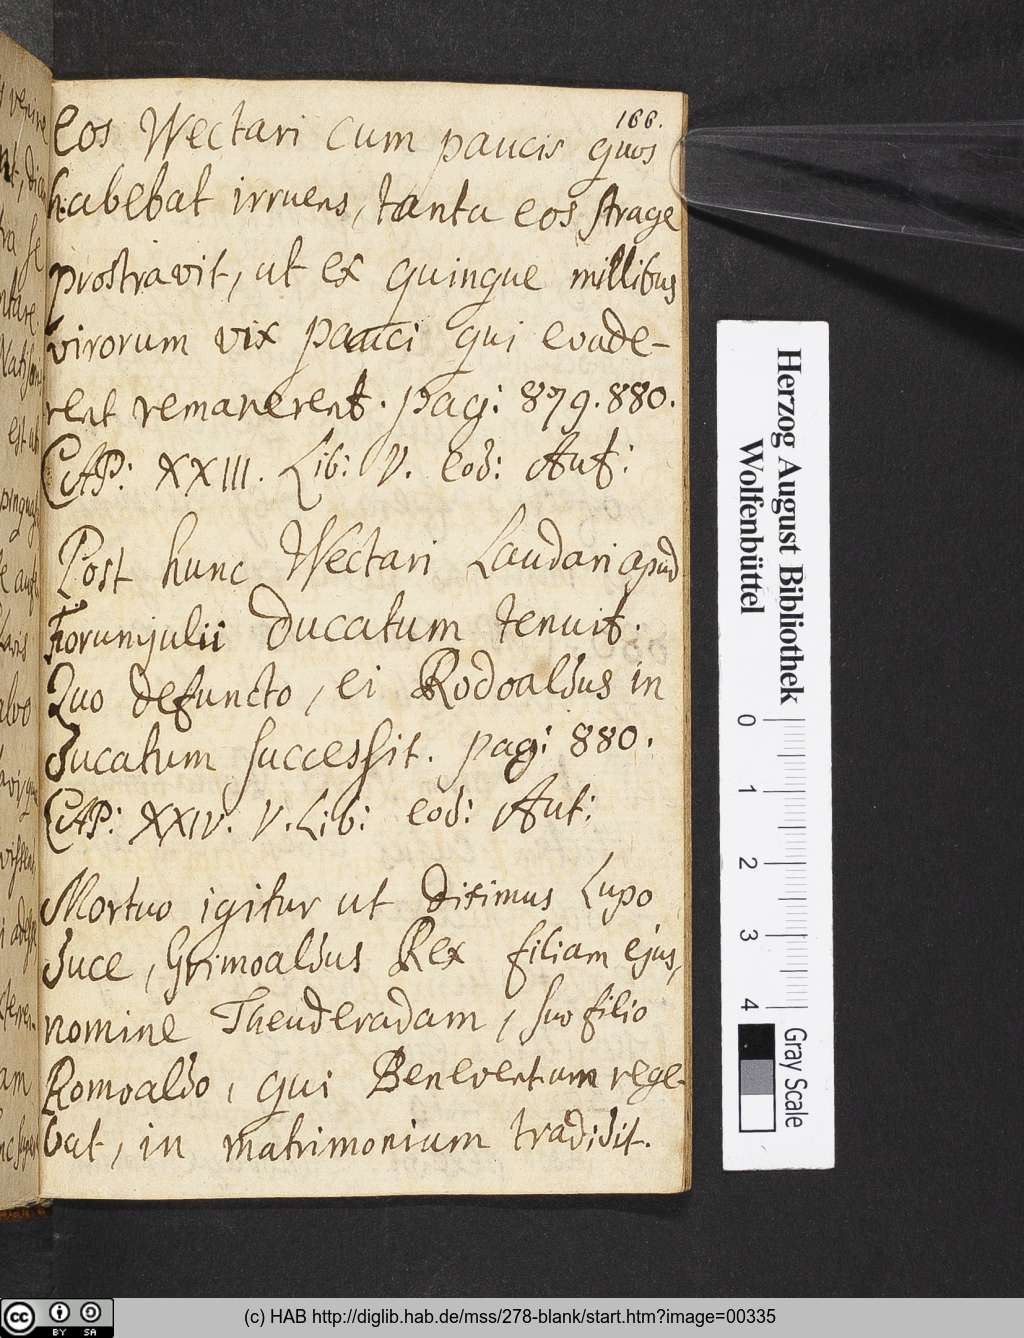 166.
Eos Wectari cum paucis quos
habebat irruens, tanta eos strage
prostravit, ut ex quinque millibus
virorum vix pauci qui evade-
rent remanerent. pag: 879. 880.
CAP: XXIII. Lib: V. eod: Aut:
Post hunc Wectari Laudari apud
Forumjulii Ducatum tenuit.
Quo defuncto, ei Rodoaldus in
Ducatum successit. pag: 880.
CAP: XXIV. V. Lib: eod: Aut:
Mortuo igitur ut diximus Lupo
Duce, Grimoaldus Rex filiam ejus,
nomine Theuderadam, suo filio
Romoaldo, qui Beneventum rege-
bat, in matrimonium tradidit.
Herzog August Bibliothek
Wolfenbüttel
0 1 2 3 4
Gray Scale
cc BY SA
(c) HAB http://diglib.hab.de/mss/278-blank/start.htm?image=00335